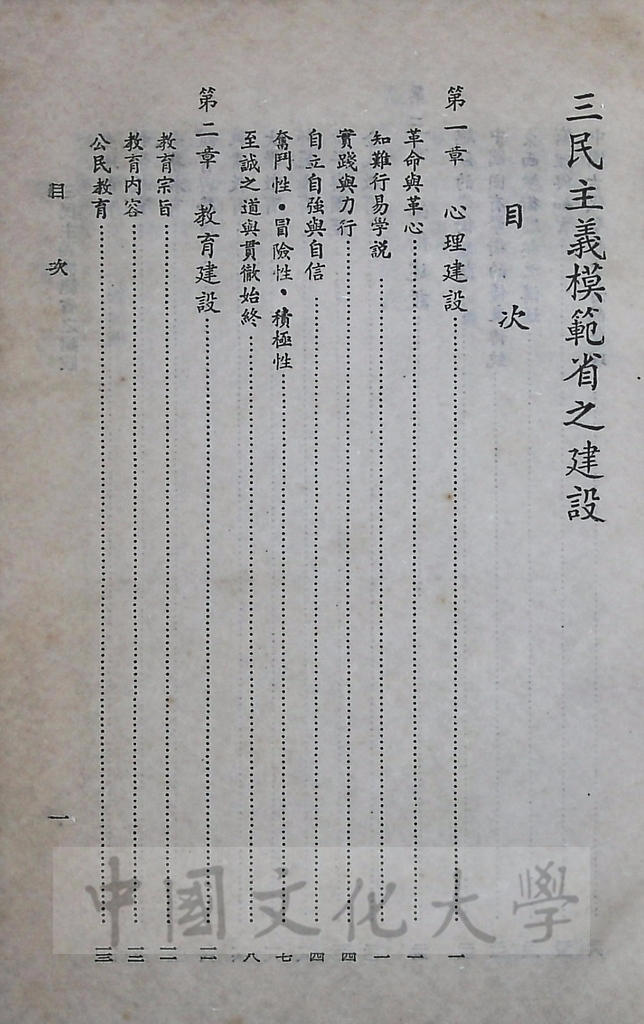 三民主義模範省之建設
目次
第一章 心理建設 一
革命與革心 一
知難行易學説 一
實踐與力行 四
自立自強與自信 四
奮鬥性・冒險性・積極性 七
至誠之道與貫徹始終 八
第二章 教育建設
教育宗旨
教育內容
公民教育
目次
一
中國文化大學